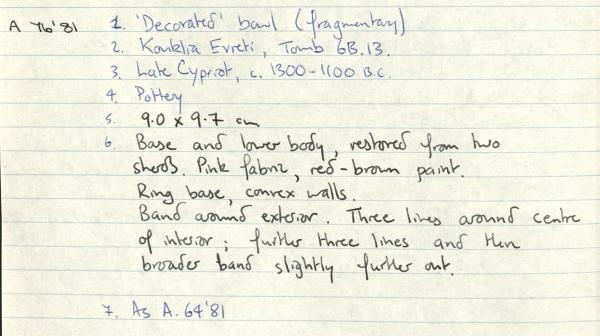 A 76'81 1. 'Decorated' bowl (fragmentary)
2. Kouklia Evreti, Tomb GB.13.
3. Late Cypriot, c. 1300-1100 B.C.
4. Pottery
5. 9.0 x 9.7 cm
6. Base and lower body, restored from two
sherds. Pink fabric, red-brown paint.
Ring base, convex walls.
Band around exterior. Three lines around centre
of interior; further three lines and then
broader band slightly further out.
7. As A. 64'81